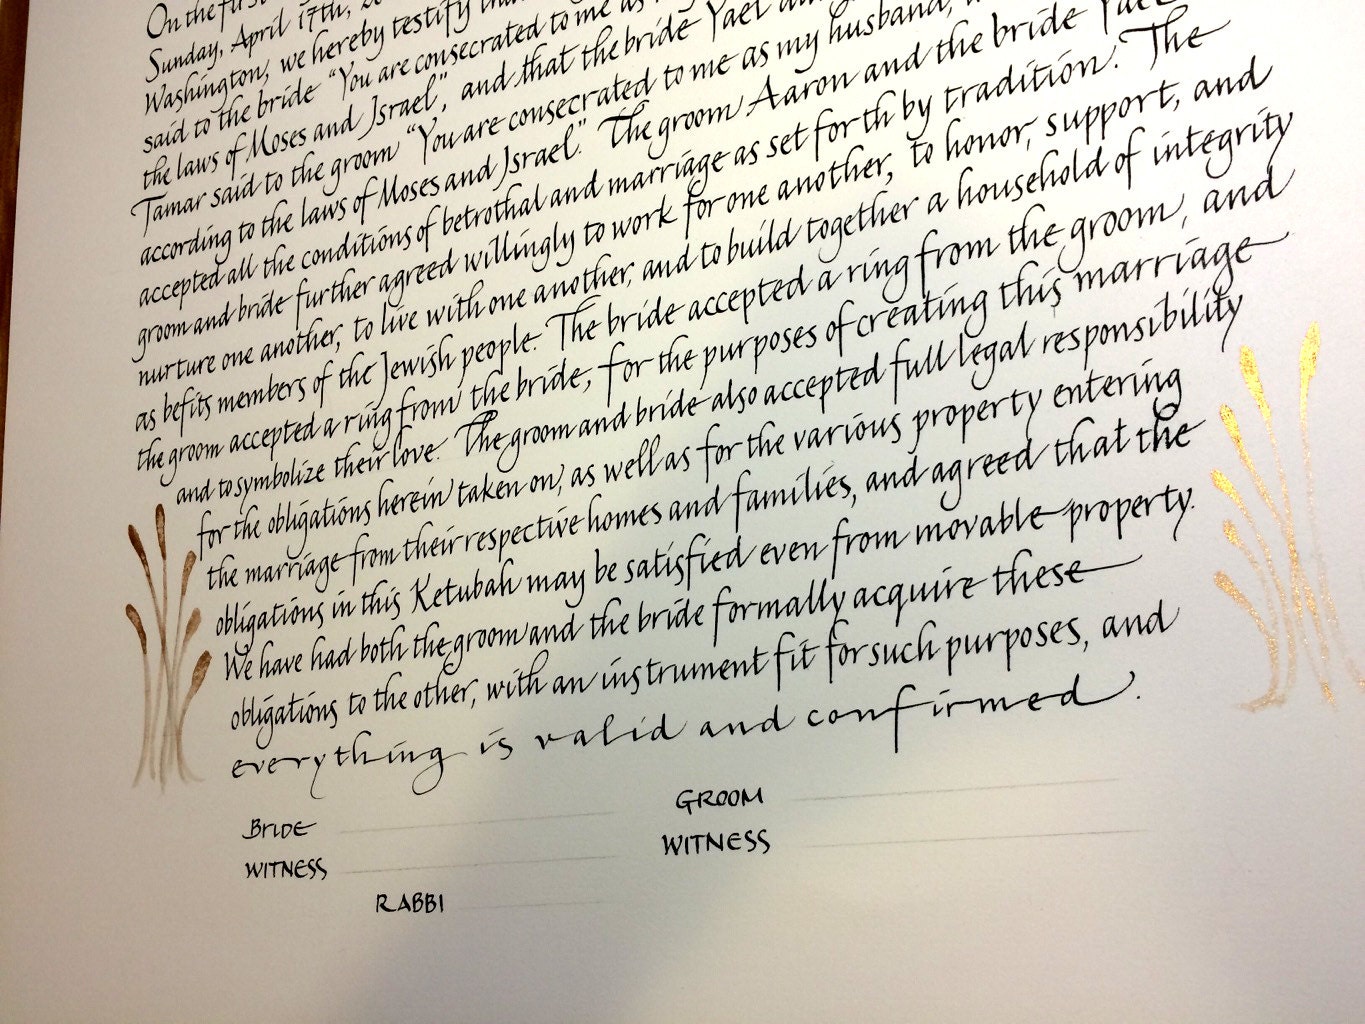 On the first
Sunday, April 17th,
Washington, we hereby testify that
said to the bride "You are consecrated to me as
the laws of Moses and Israel", and that the bride Yael
Tamar said to the groom "You are consecrated to me as my husband,
according to the laws of Moses and Israel." The groom Aaron and the bride Yael
accepted all the conditions of betrothal and marriage as set forth by tradition. The
groom and bride further agreed willingly to work for one another, to honor, support, and
nurture one another, to live with one another, and to build together a household of integrity
as befits members of the Jewish people. The bride accepted a ring from the groom, and
the groom accepted a ring from the bride, for the purposes of creating this marriage
and to symbolize their love. The groom and bride also accepted full legal responsibility
for the obligations herein taken on, as well as for the various property entering
the marriage from their respective homes and families, and agreed that the
obligations in this Ketubah may be satisfied even from movable property.
We have had both the groom and the bride formally acquire these
obligations to the other, with an instrument fit for such purposes, and
everything is valid and confirmed.
BRIDE GROOM
WITNESS WITNESS
RABBI